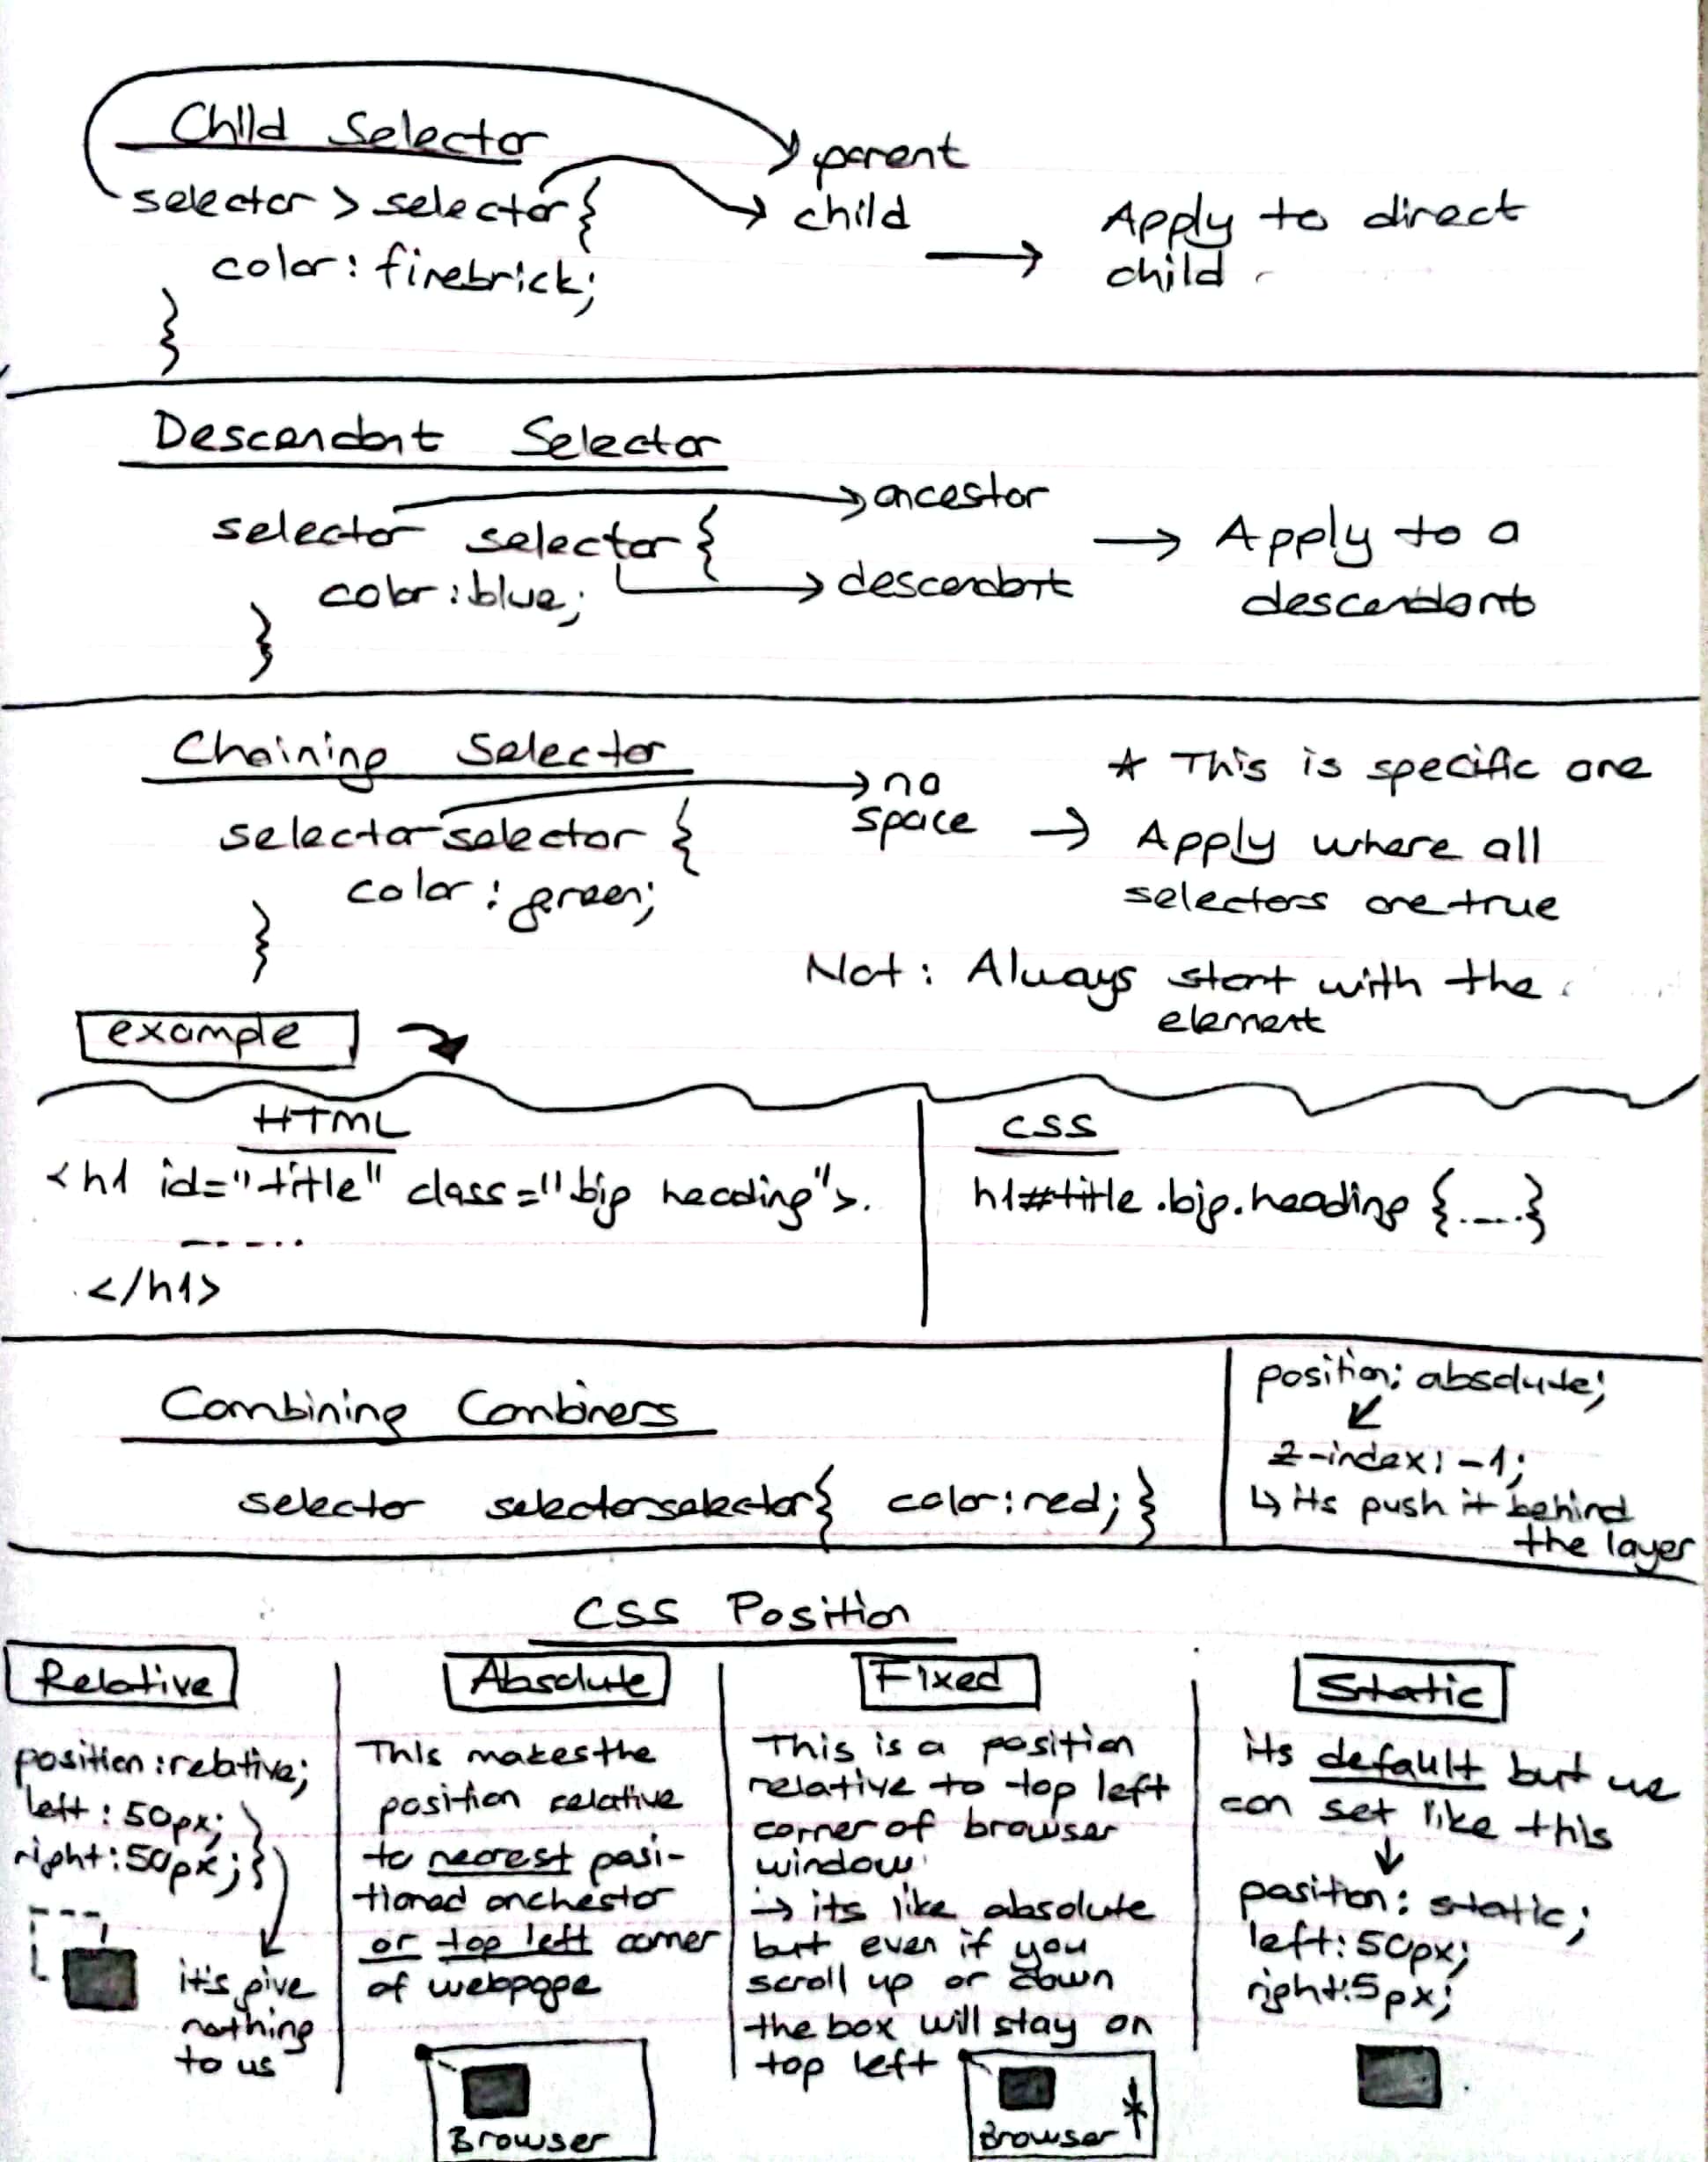 Child Selector
parent
selector > selector {
child
Apply to direct
child
color: firebrick;
}
Descendant Selector
ancestor
selector selector {
Apply to a
descendant
color: blue;
descendant
}
Chaining Selector
no
space
★ This is specific one
selectorselector {
Apply where all
selectors are true
color: green;
}
Not: Always start with the
element
example
HTML
<h1 id="title" class="big heading">.
-----
</h1>
CSS
h1#title.big.heading {.....}
Combining Combiners
selector selectorselector{ color:red; }
position: absolute;
z-index: -1;
its push it behind
the layer
CSS Position
Relative
position: relative;
left: 50px;
right: 50px;
it's give
nothing
to us
Absolute
This makes the
position relative
to nearest posi-
tioned anchestor
or top left corner
of webpage
Browser
Fixed
This is a position
relative to top left
corner of browser
window
→ its like absolute
but even if you
scroll up or down
the box will stay on
top left
Browser
Static
its default but we
can set like this
position: static;
left: 50px;
right: 5px;